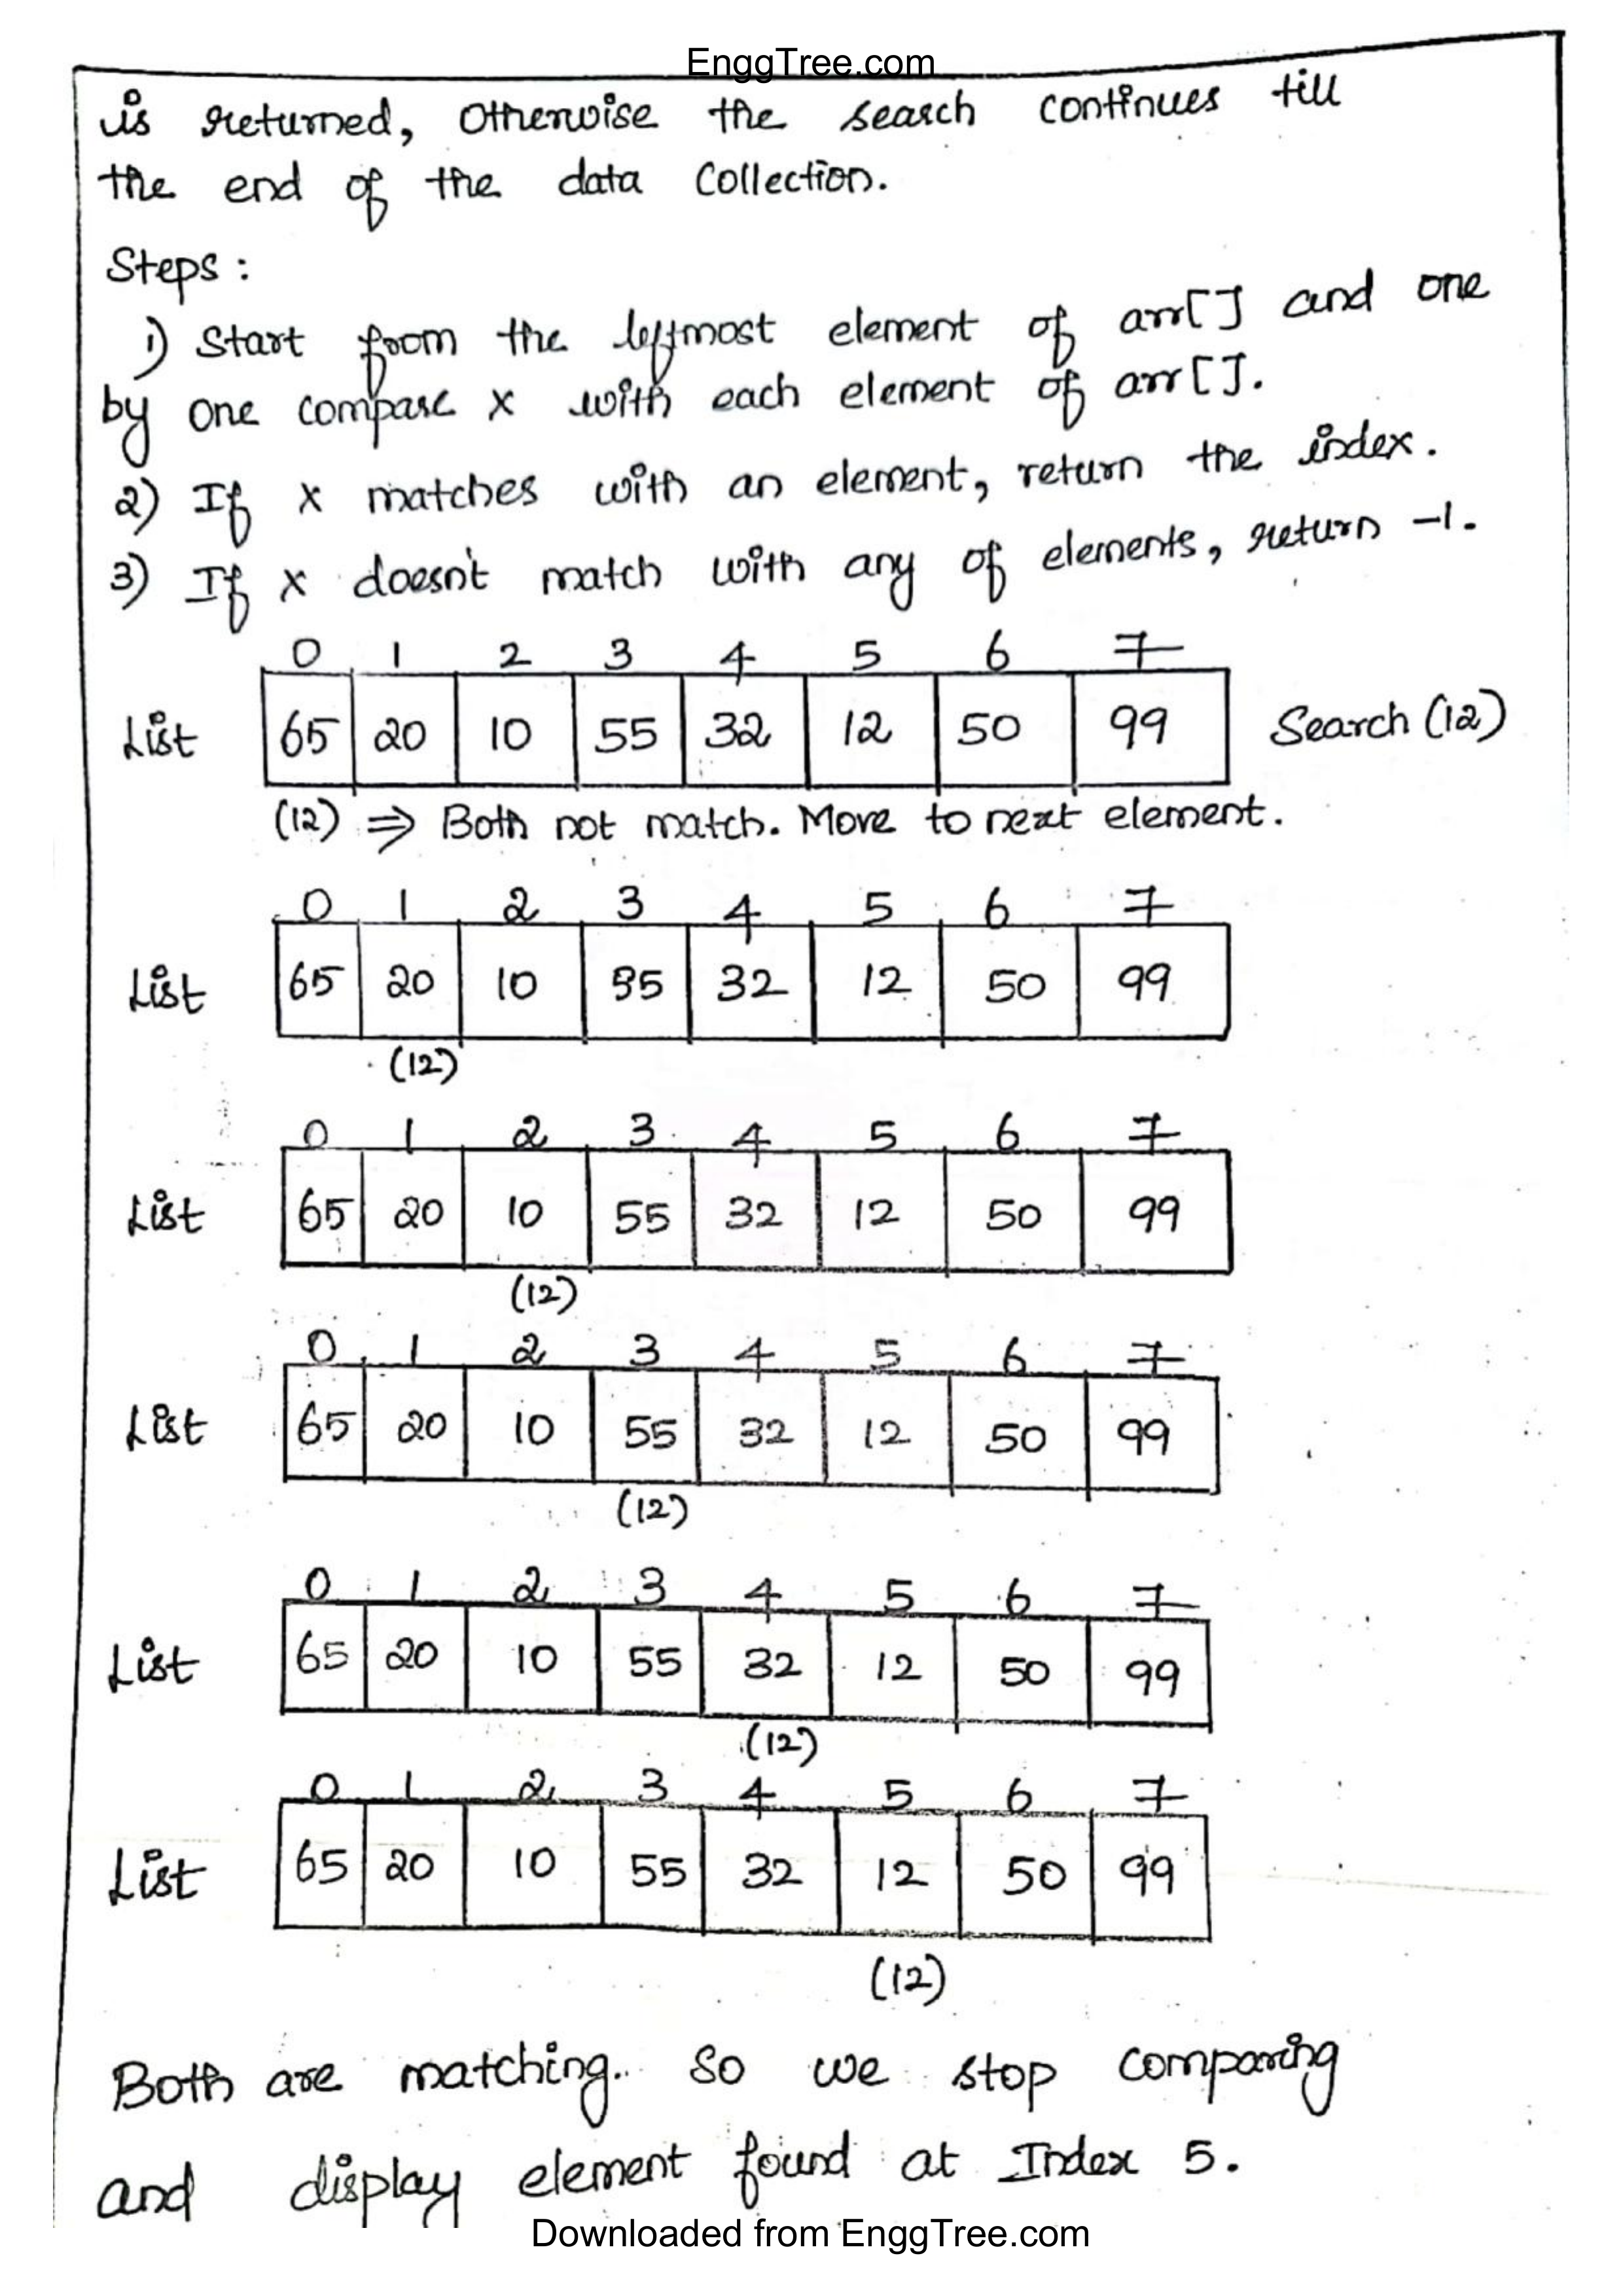 EnggTree.com
is returned, Otherwise the search continues till
the end of the data Collection.
Steps :
1) Start from the leftmost element of arr[] and one
by one compare x with each element of arr[].
2) If x matches with an element, return the index.
3) If x doesn't match with any of elements, return -1.
0 1 2 3 4 5 6 7
List 65 20 10 55 32 12 50 99 Search (12)
(12) ⇒ Both not match. Move to next element.
0 1 2 3 4 5 6 7
List 65 20 10 55 32 12 50 99
(12)
0 1 2 3 4 5 6 7
List 65 20 10 55 32 12 50 99
(12)
0 1 2 3 4 5 6 7
List 65 20 10 55 32 12 50 99
(12)
0 1 2 3 4 5 6 7
List 65 20 10 55 32 12 50 99
(12)
0 1 2 3 4 5 6 7
List 65 20 10 55 32 12 50 99
(12)
Both are matching. So we stop comparing
and display element found at Index 5.
Downloaded from EnggTree.com